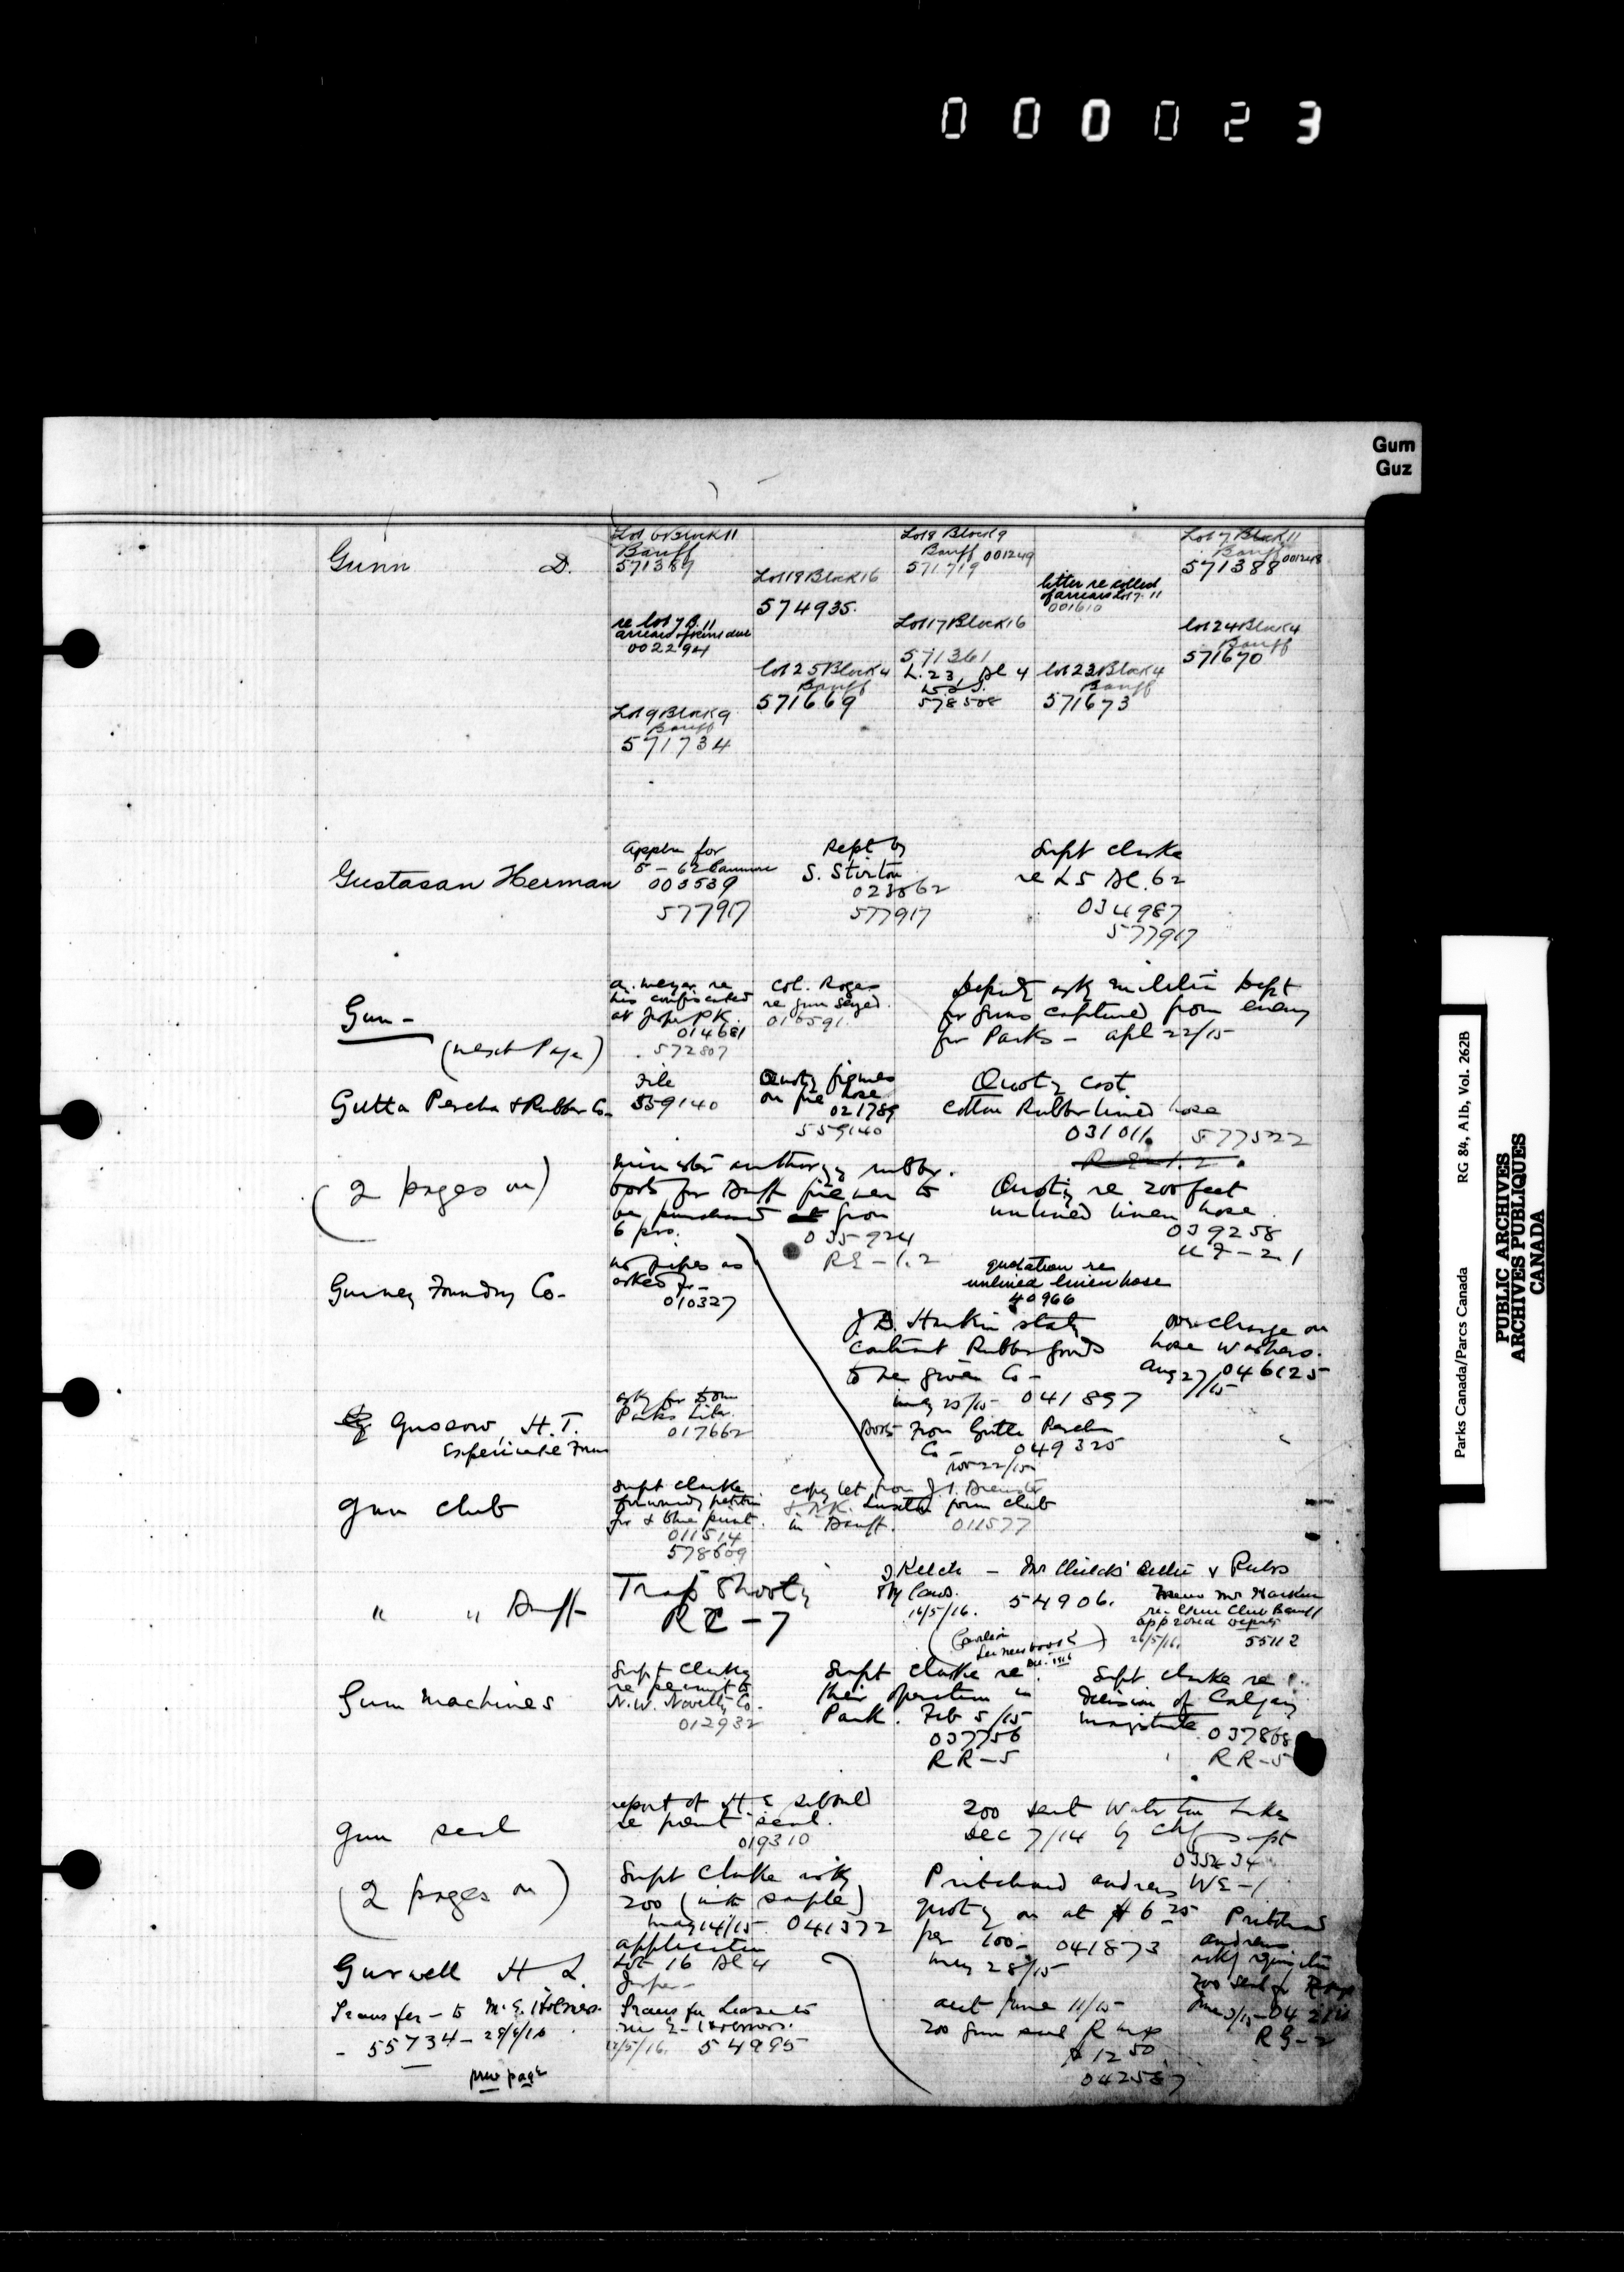 000023
Gum
Guz
Gunn D.
Lot 6 Block 11
Banff
571389
Lot 18 Block 16
574935.
Lot 8 Block 9
Banff 001249
571719
letter re collect
of arrears Lot 7. 11
001610
Lot 7 Block 11
Banff 001248
571388
re lot 7 B. 11
arrears of rent due
002294
Lot 25 Block 4
Banff
571669
Lot 17 Block 16
571361
L. 23, Bl 4
578508
Lot 23 Block 4
Banff
571673
Lot 24 Block 4
Banff
571670
Lot 9 Block 9
Banff
571734
Gustasan Herman
Appln for
5 - 62 Canmore
003539
577917
Rept by
S. Stirton
023862
577917
Supt Clarke
re L5 Bl. 62
034987
577917
Gun -
(next Page)
a. Meyer re
his confiscated
at Jasper PK.
014681
572807
Col. Rogers
re gun seized.
016591.
Deputy asks militia Dept
for guns captured from enemy
for Parks - apl 22/15
Gutta Percha & Rubber Co.
File
559140
Quoting figures
on fire hose
021789
559140
Quoting cost
cotton Rubber lined hose
031011. 577522
(2 pages on)
Minister authorizing rubber
boots for Banff firemen to
be purchased from
6 prs.
035924
RE-1.2
Quoting re 200 feet
unlined linen hose.
039258
U7-21
Gurney Foundry Co-
no pipes as
asked for -
010327
quotation re
unlined linen hose
40966
J. B. Harkin stating
contract Rubber goods
to be given Co -
may 25/15 - 041897
overcharge on
hose washers.
Aug 27/15 046125
Gussow, H. T.
Experimental Farm
asking for
Parks Litr.
017662
Boots from Gutta Percha
Co - 049325
Nov 22/15
Gun Club
Supt Clarke
forwarding petition
for & blue print.
011514
578609
copy let from J. I. Brewster
& N.K. Luxton form club
in Banff. 011577
" " Banff
Trap Shooting
RE-7
Sketch - Mr Childs' Bldg & Rules
By laws. 54906.
16/5/16.
Memo Mr Harkin
re Gun Club Banff
approved
26/5/16. 55112
Gum Machines
Supt Clarke
re permit to
N.W. Novelty Co-
012932
Supt Clarke re
their operation in
Park. Feb 5/15
037756
RR-5
Supt Clarke re
decision of Calgary
magistrate 037868
RR-5
gun seal
report of H. E. Sibbald
re patent seal.
019310
200 sent Waterton Lakes
Dec 7/14 by Chf Supt
WE-1
(2 pages on)
Supt Clarke asking
200 (with sample)
may 14/15. 041372
Pritchard Andrews
quoting on at $6 25
per 100 - 041873
may 28/15
Pritchard
Andrews
RG-2
Gurwell H L.
application
Lot 16 Bl 4
Jasper -
Transfer - to M. E. Holmes.
- 55734 - 28/6/16
Transfer Lease to
M E - Holmes.
12/5/16. 54995
acct June 11/15
200 gun seal
$12 50
042587
new page
Parks Canada/Parcs Canada RG 84, A1b, Vol. 262B
PUBLIC ARCHIVES
ARCHIVES PUBLIQUES
CANADA